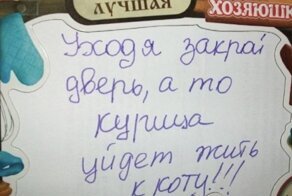 лучшая
хозяюшк
Уходя закрай
дверь, а то
курица
уйдет жить
к коту!!!